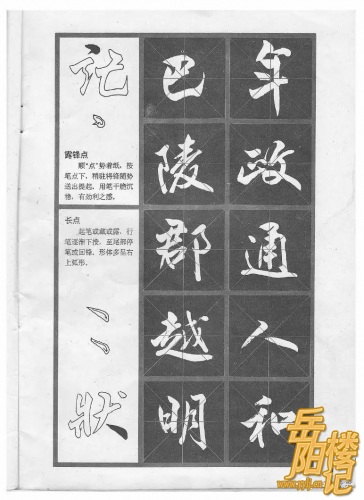 年政通人和
巴陵郡越明
訛
露锋点
顺“点”势着纸，按
笔点下，稍驻将锋随势
送出提起，用笔干脆沉
锋，有劲利之感。
长点
起笔或藏或露，行
笔逐渐下按，至尾部停
笔或回锋，形体多呈右
上弧形。
狀
岳阳楼记